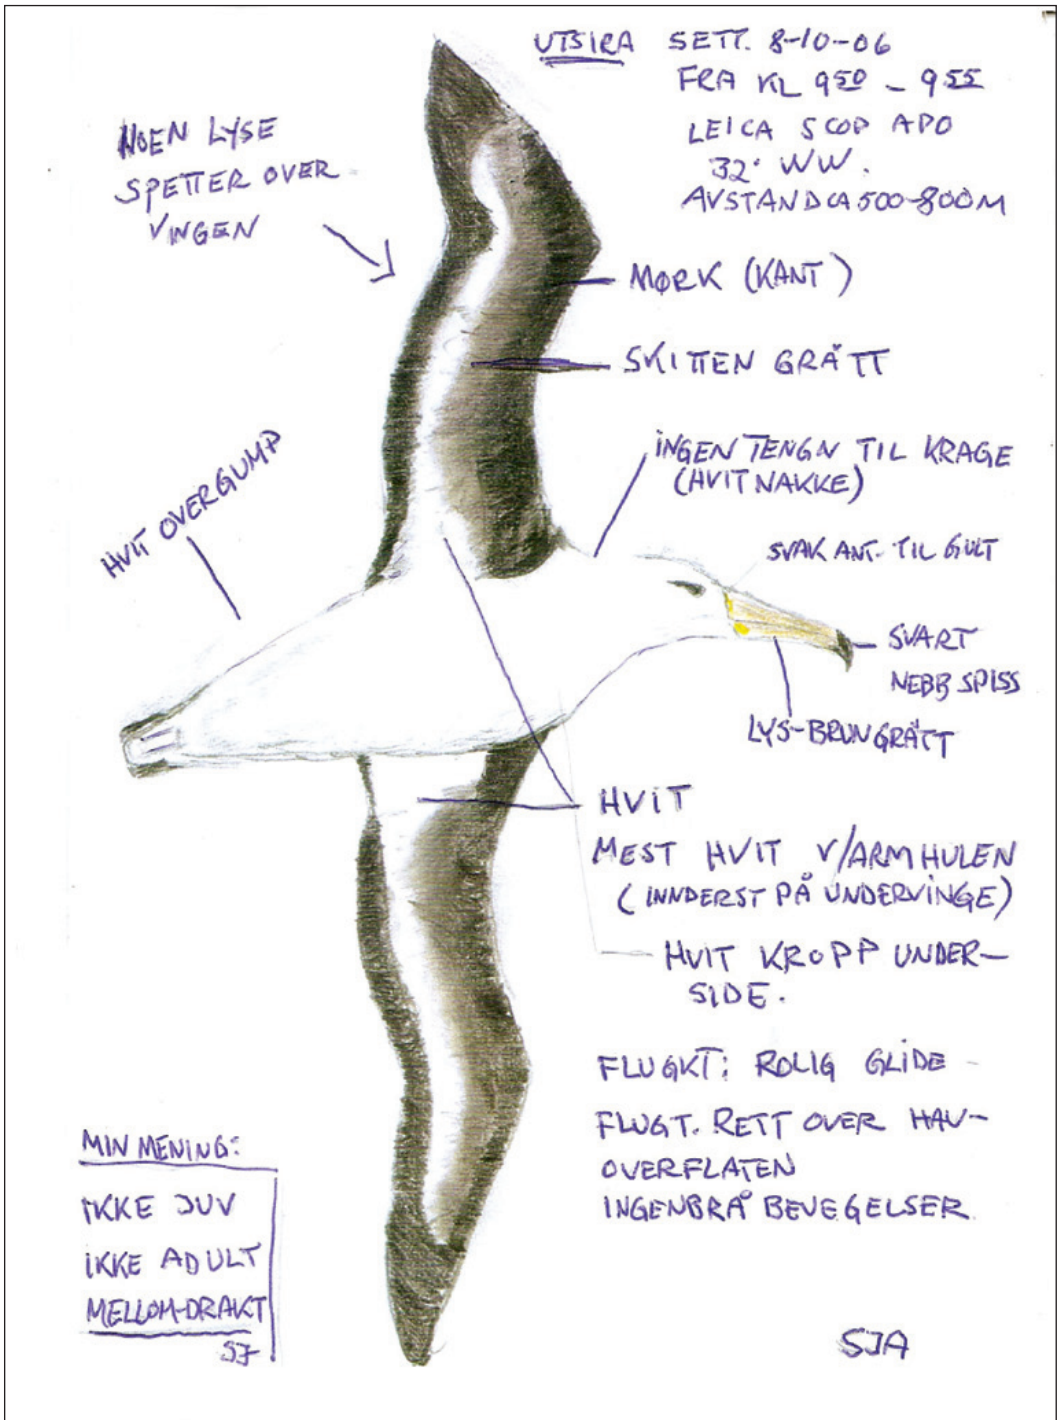 UTSIRA SETT. 8-10-06
FRA KL 950 - 955
LEICA SCOP APO
32* WW.
AVSTAND CA 500-800M
NOEN LYSE
SPETTER OVER
VINGEN
MØRK (KANT)
SKITTEN GRÅTT
INGEN TENGN TIL KRAGE
(HVIT NAKKE)
HVIT OVERGUMP
SVAK ANT. TIL GULT
SVART
NEBB SPISS
LYS-BRUNGRÅTT
HVIT
MEST HVIT V/ARMHULEN
(INNDERST PÅ UNDERVINGE)
HVIT KROPP UNDER-
SIDE.
FLUGKT: ROLIG GLIDE-
FLUGT. RETT OVER HAV-
OVERFLATEN
INGEN BRÅ BEVEGELSER
MIN MENING:
IKKE JUV
IKKE ADULT
MELLOM-DRAKT
SJ
SJA